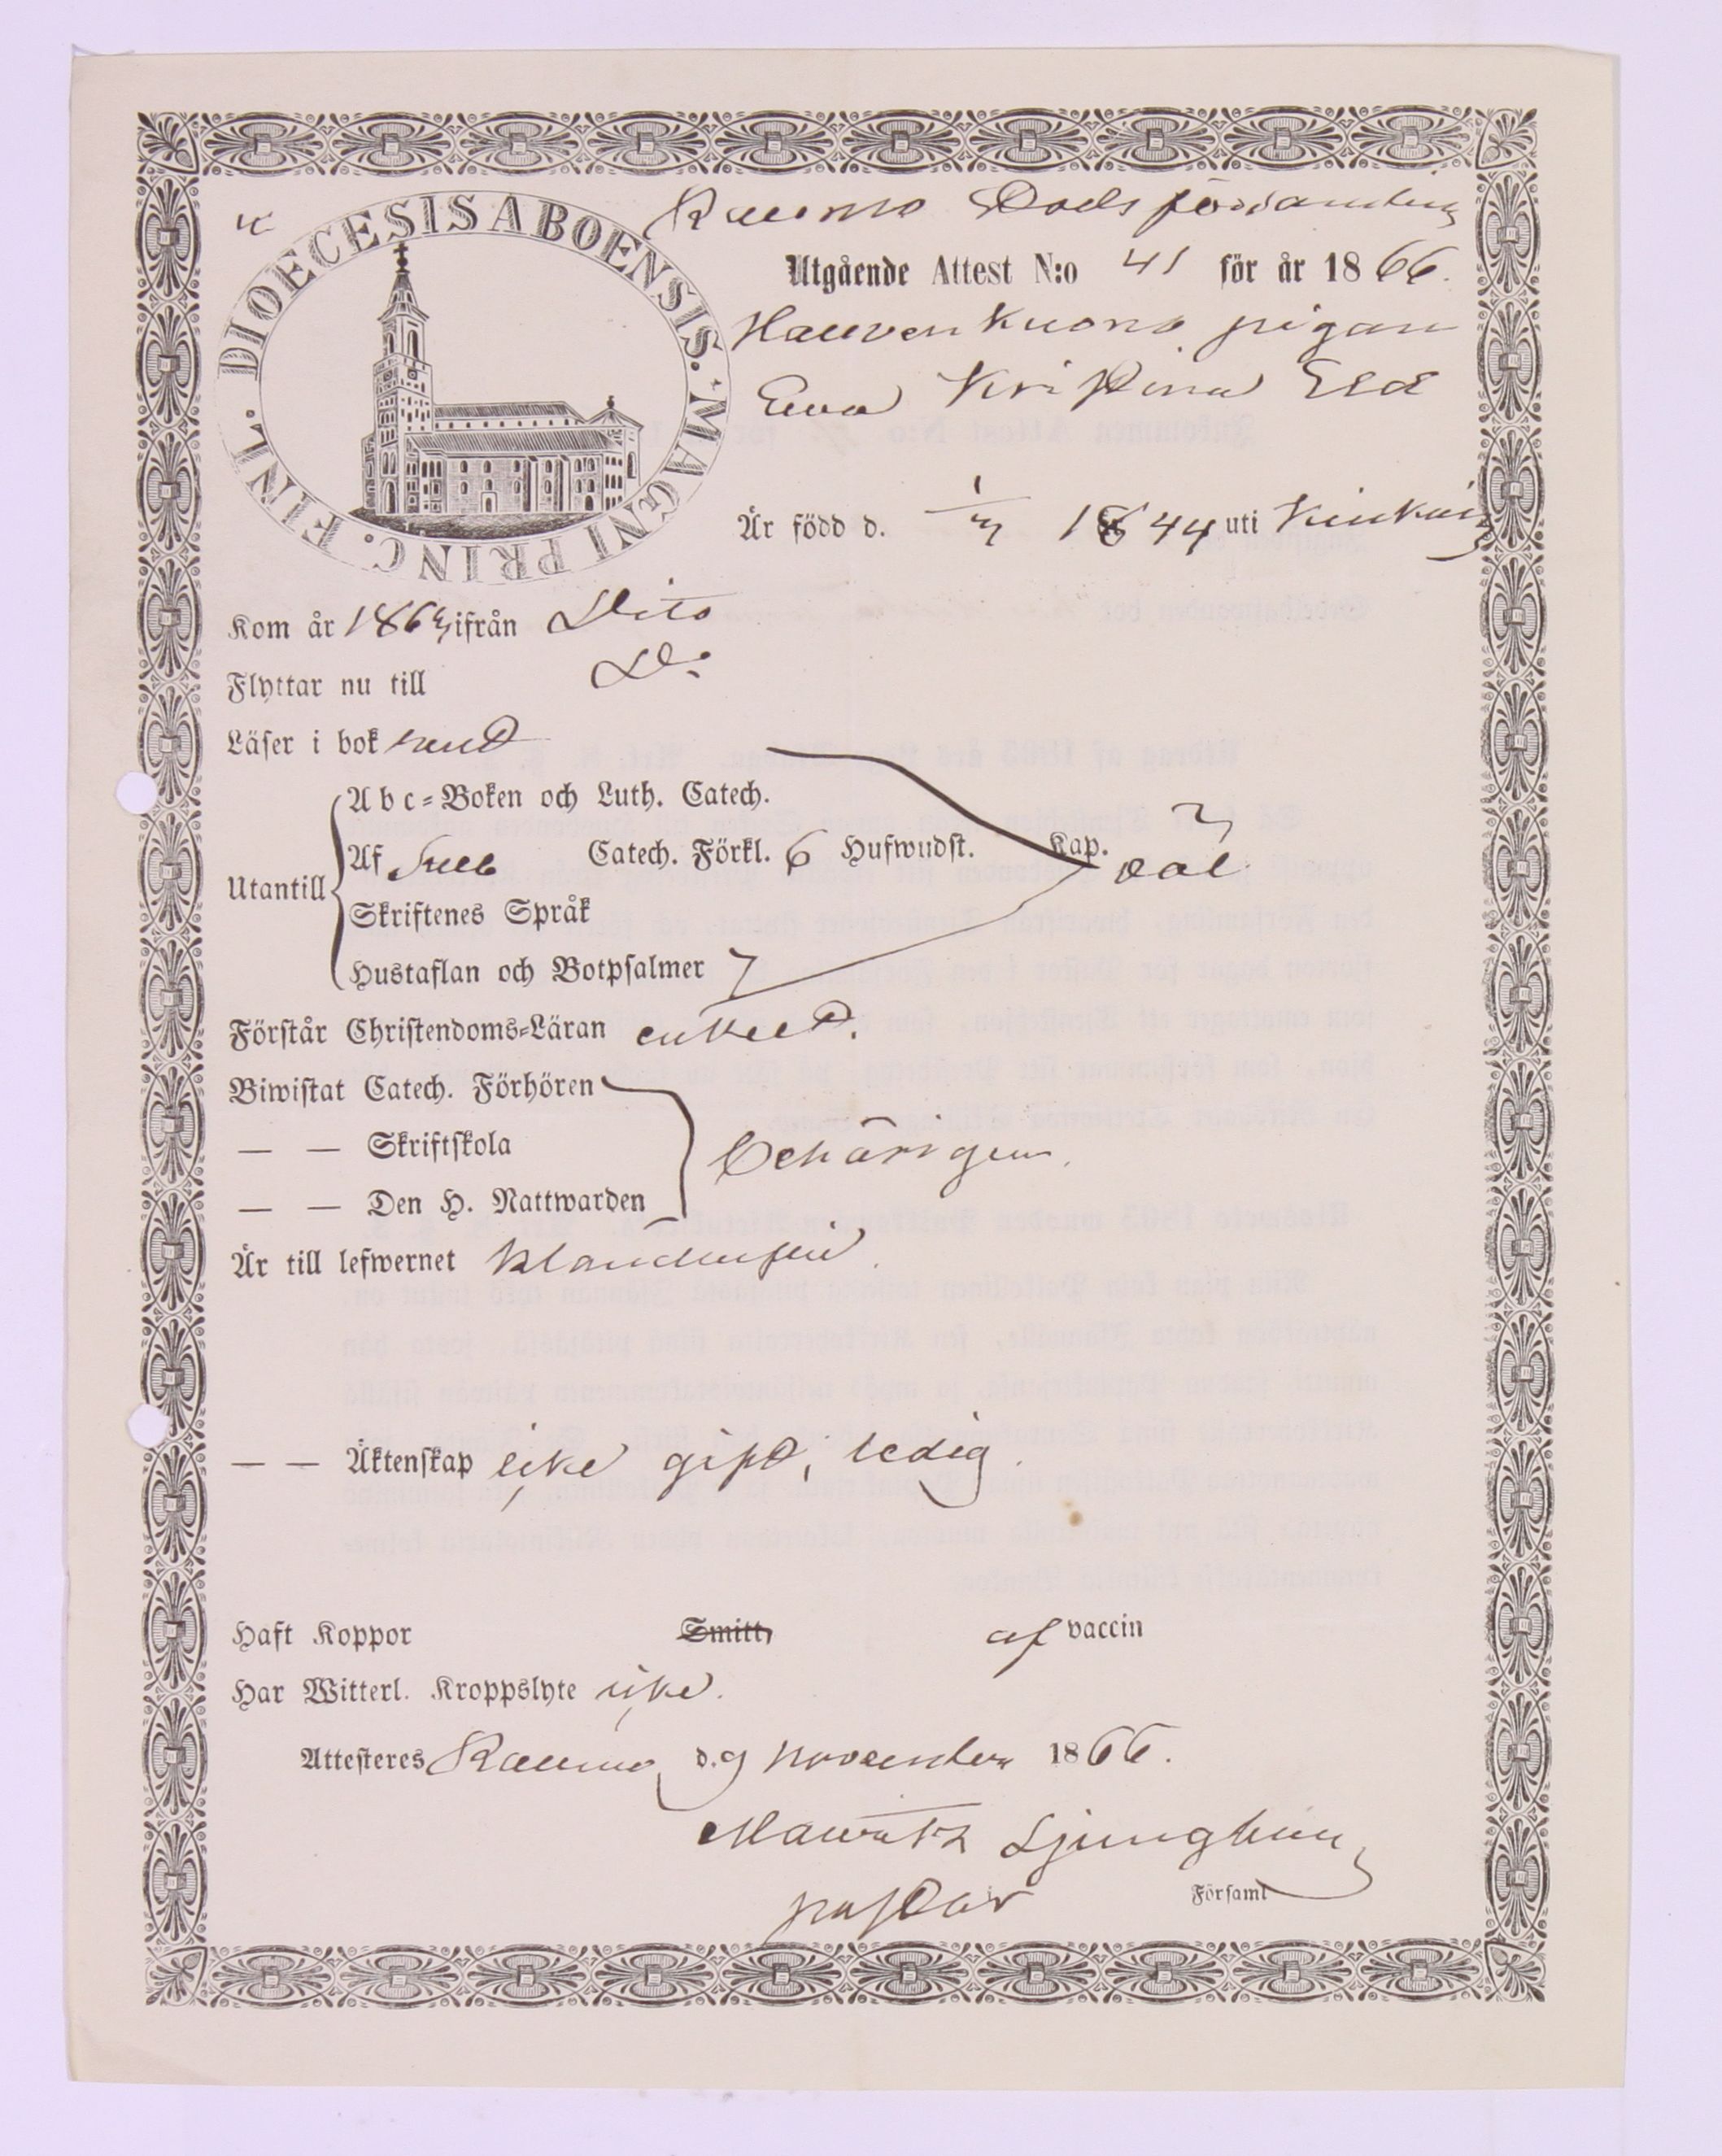 DIOECESIS ABOENSIS. MAGNI PRINC. FINL.
Raumo Stads församling
Utgående Attest N:o 41 för år 1866.
pigan
Eva Kristina
Är född d. 1844 uti
Kom år 1863 ifrån Dito
Flyttar nu till Do
Läser i bok rent
Abc=Boken och Luth. Catech.
Utantill Af Sveb Catech. Förkl. 6 Hufwudst. Kap.
Skriftenes Språk
Hustaflan och Botpsalmer 7
Förstår Christendoms=Läran enkelt.
Biwistat Catech. Förhören
— — Skriftskola behörigen.
— — Den H. Nattwarden
Är till lefwernet klanderfri.
— — Äktenskap icke gift, ledig.
Haft Koppor Smitt, af vaccin
Har Witterl. Kroppslyte icke.
Attesteres Raumo d. 9 November 1866.
Ljunghein
pastor Församl